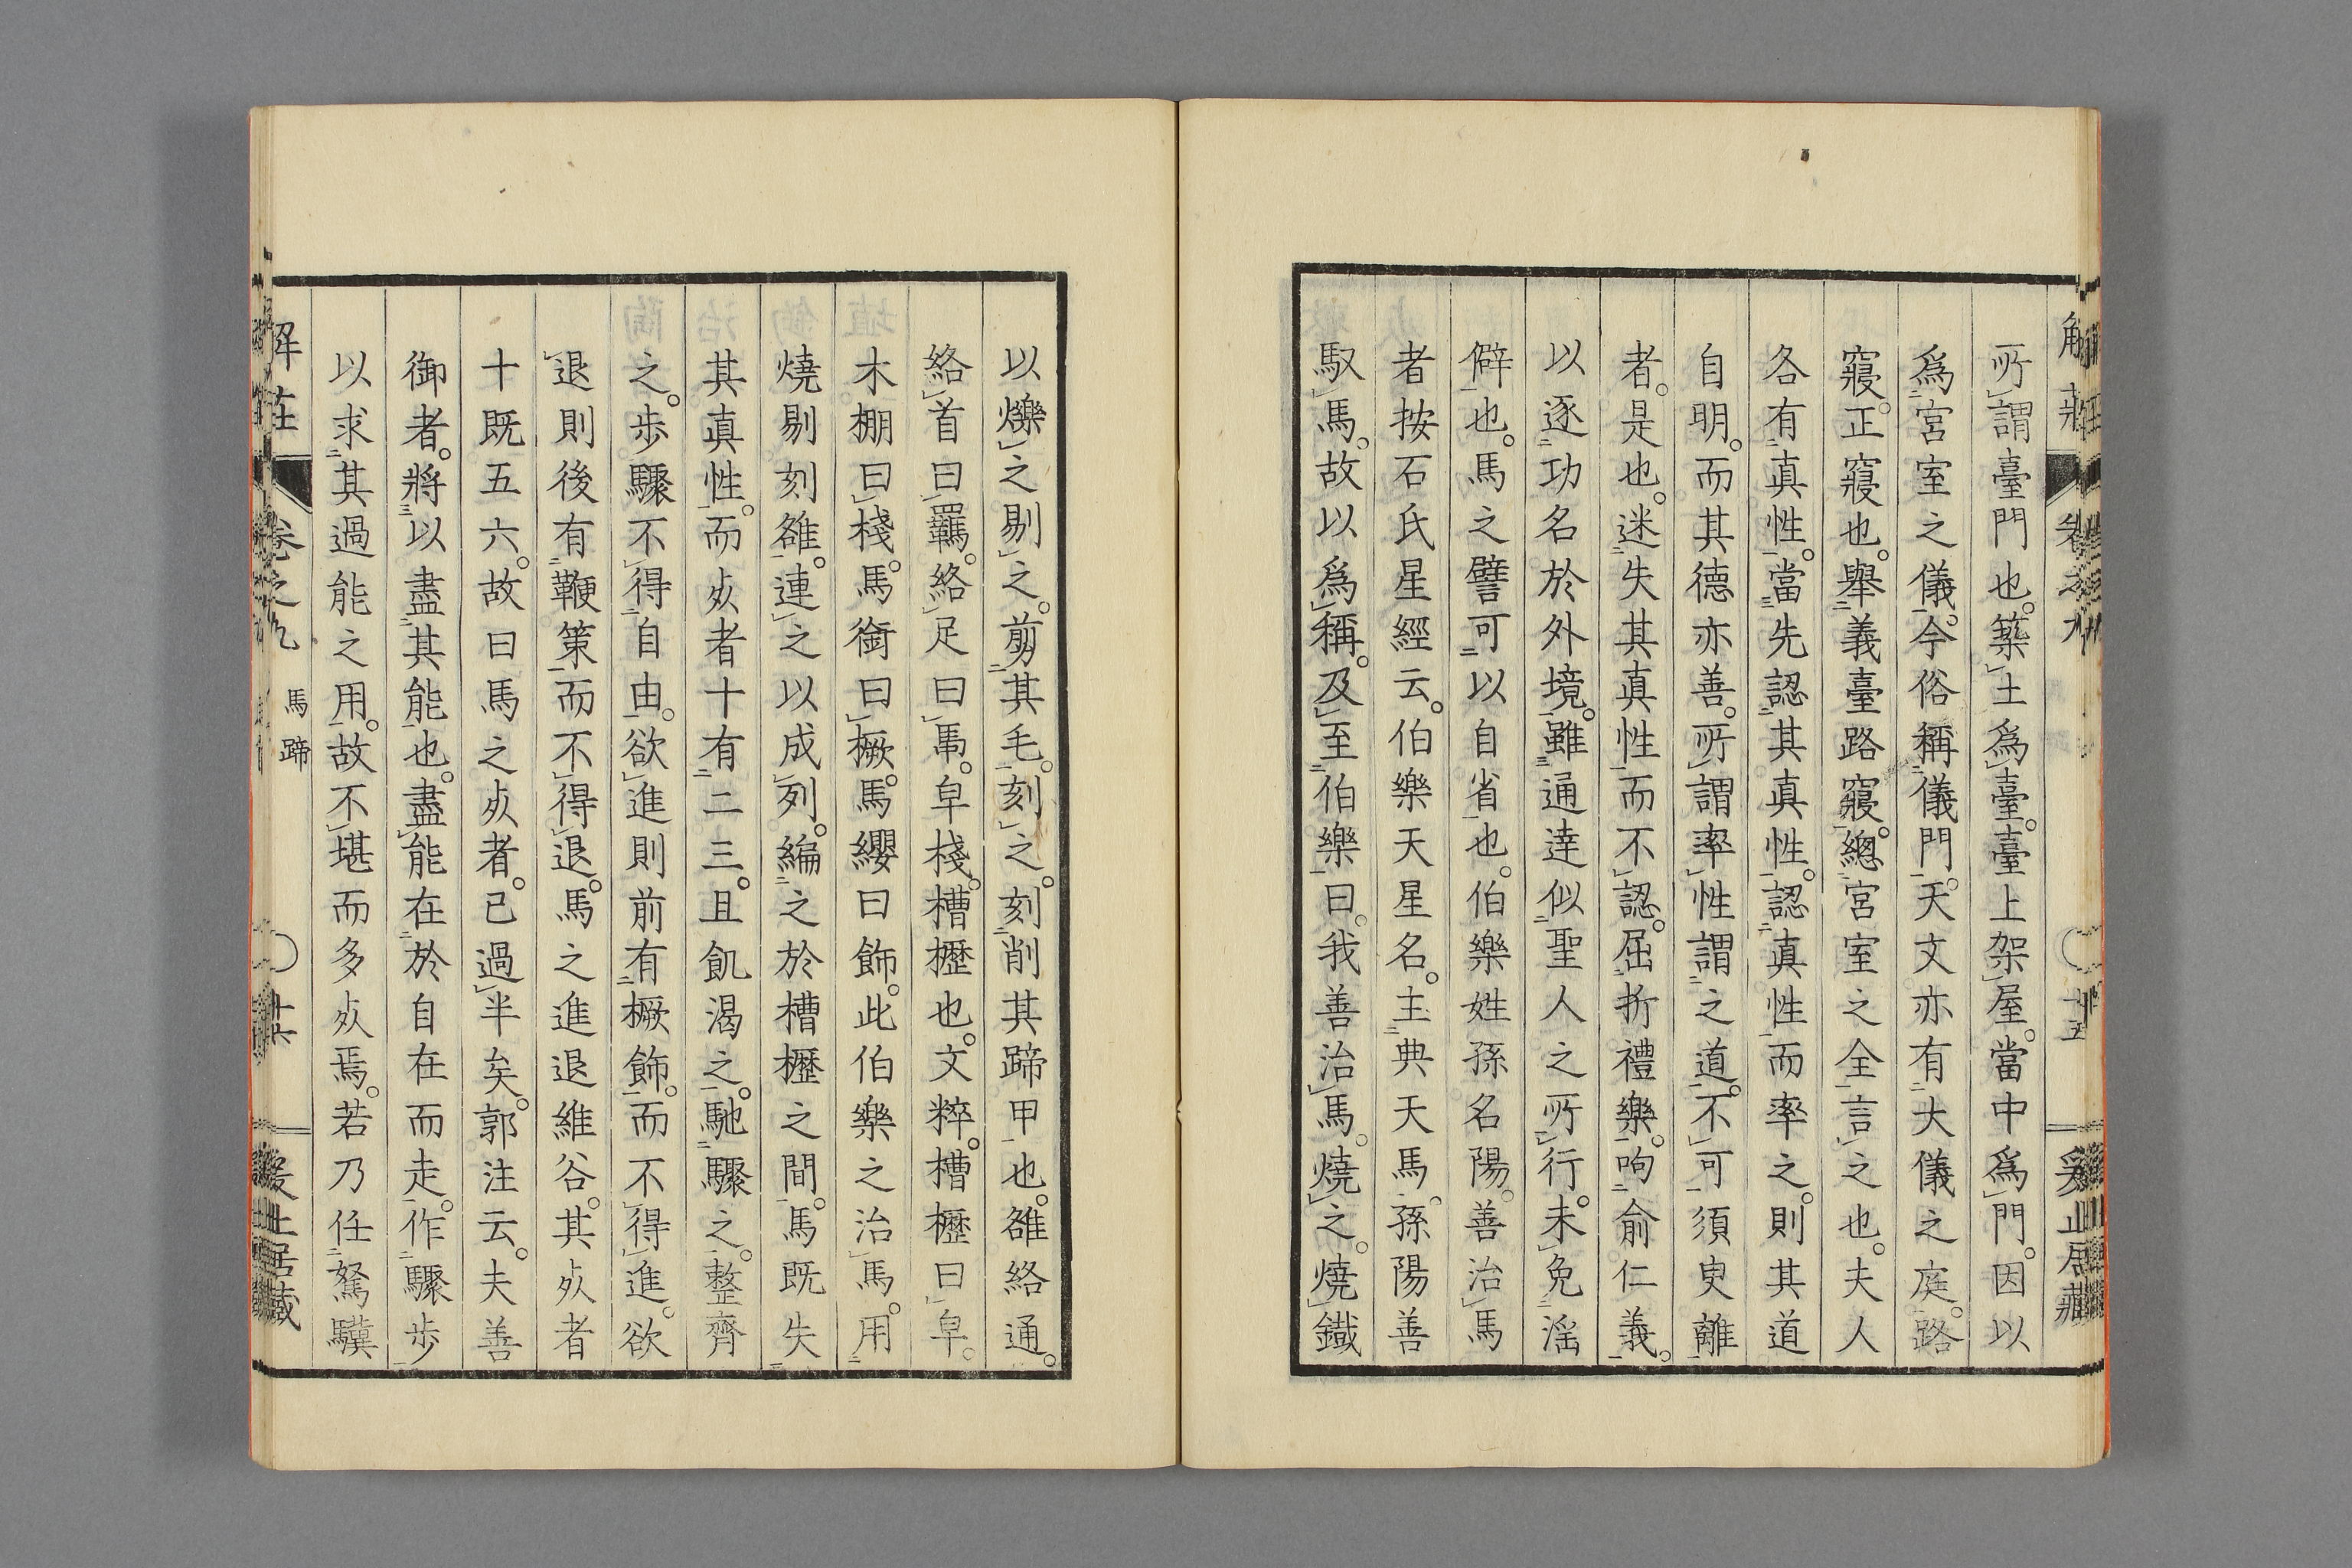 所謂臺門也。築土爲臺。臺上架屋。當中爲門。因以
爲宮室之儀。今俗稱儀門。天文亦有大儀之庭。路
寢。正寢也。舉義臺路寢。總宮室之全言之也。夫人
各有真性。當先認其真性。認真性而率之。則其道
自明。而其德亦善。所謂率性謂之道。不可須臾離
者。是也。迷失其真性而不認。屈折禮樂。呴俞仁義。
以逐功名於外境。雖通達似聖人之所行。未免淫
僻也。馬之譬可以自省也。伯樂姓孫名陽。善治馬
者按石氏星經云。伯樂天星名。主典天馬。孫陽善
馭馬。故以爲稱。及至伯樂曰。我善治馬。燒之。燒鐵
以爍之剔之。剪其毛。刻之。刻削其蹄甲也。雒絡通。
絡首曰羈。絡足曰馽。皁棧。槽櫪也。文粹。槽櫪曰皁。
木棚曰棧。馬銜曰橛。馬纓曰飾。此伯樂之治馬。用
燒剔刻雒。連之以成列。編之於槽櫪之間。馬既失
其真性。而死者十有二三。且飢渴之。馳驟之。整齊
之。步驟不得自由。欲進則前有橛飾。而不得進。欲
退則後有鞭策。而不得退。馬之進退維谷。其死者
十既五六。故曰馬之死者。已過半矣。郭注云。夫善
御者。將以盡其能也。盡能在於自在而走。作驟步
以求其過能之用。故不堪而多死焉。若乃任駑驥
解莊
卷之九
馬蹄
十六